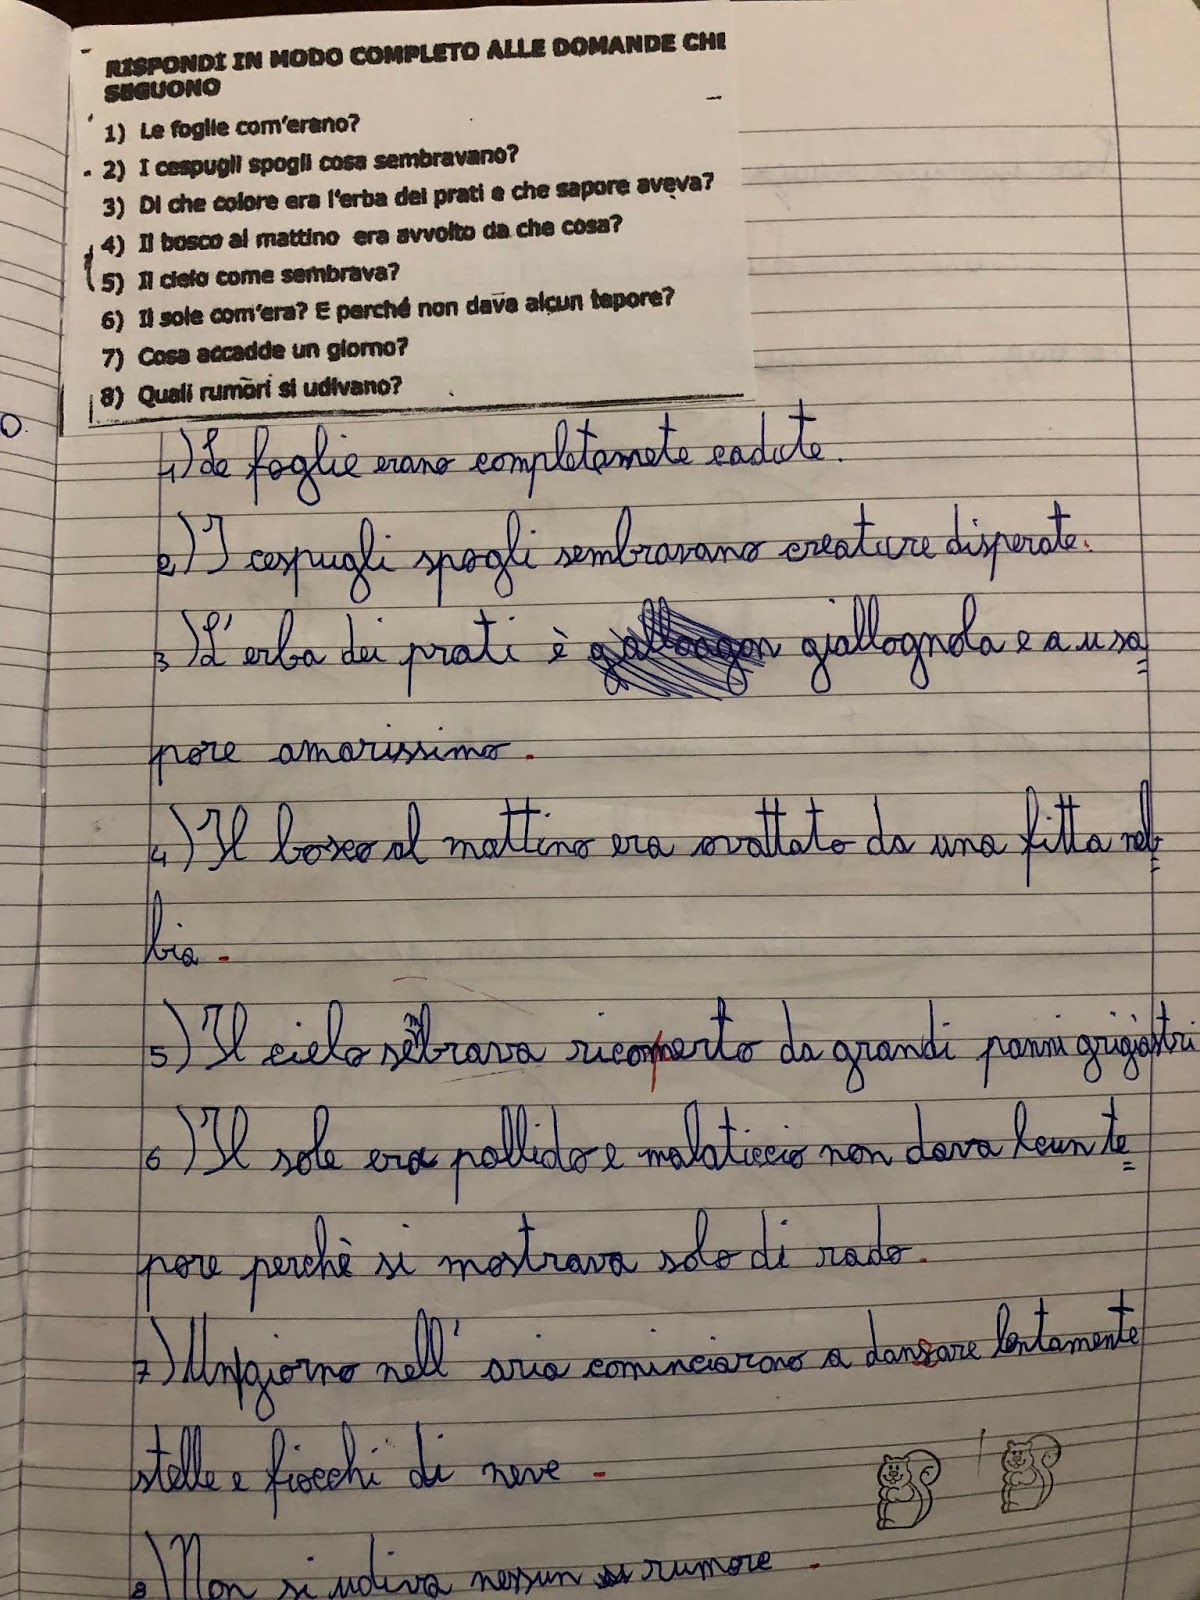 RISPONDI IN MODO COMPLETO ALLE DOMANDE CHE
SEGUONO
1) Le foglie com'erano?
2) I cespugli spogli cosa sembravano?
3) Di che colore era l'erba dei prati e che sapore aveva?
4) Il bosco al mattino era avvolto da che cosa?
5) Il cielo come sembrava?
6) Il sole com'era? E perché non dava alcun tepore?
7) Cosa accadde un giorno?
8) Quali rumori si udivano?
o.
1) Le foglie erano completamete cadute.
2) I cespugli spogli sembravano creature disperate.
3) L'erba dei prati è giallognola e a u sa
pore amarissimo.
4) Il bosco al mattino era ovattato da una fitta neb
bia.
5) Il cielo sembrava ricoperto da grandi panni grigiastri
6) Il sole era pallido e malaticcio non dava lcun te
pore perchè si mostrava solo di rado.
7) Un giorno nell'aria cominciarono a danzare lentamente
stelle e fiocchi di neve.
8) Non si udiva nessun rumore.